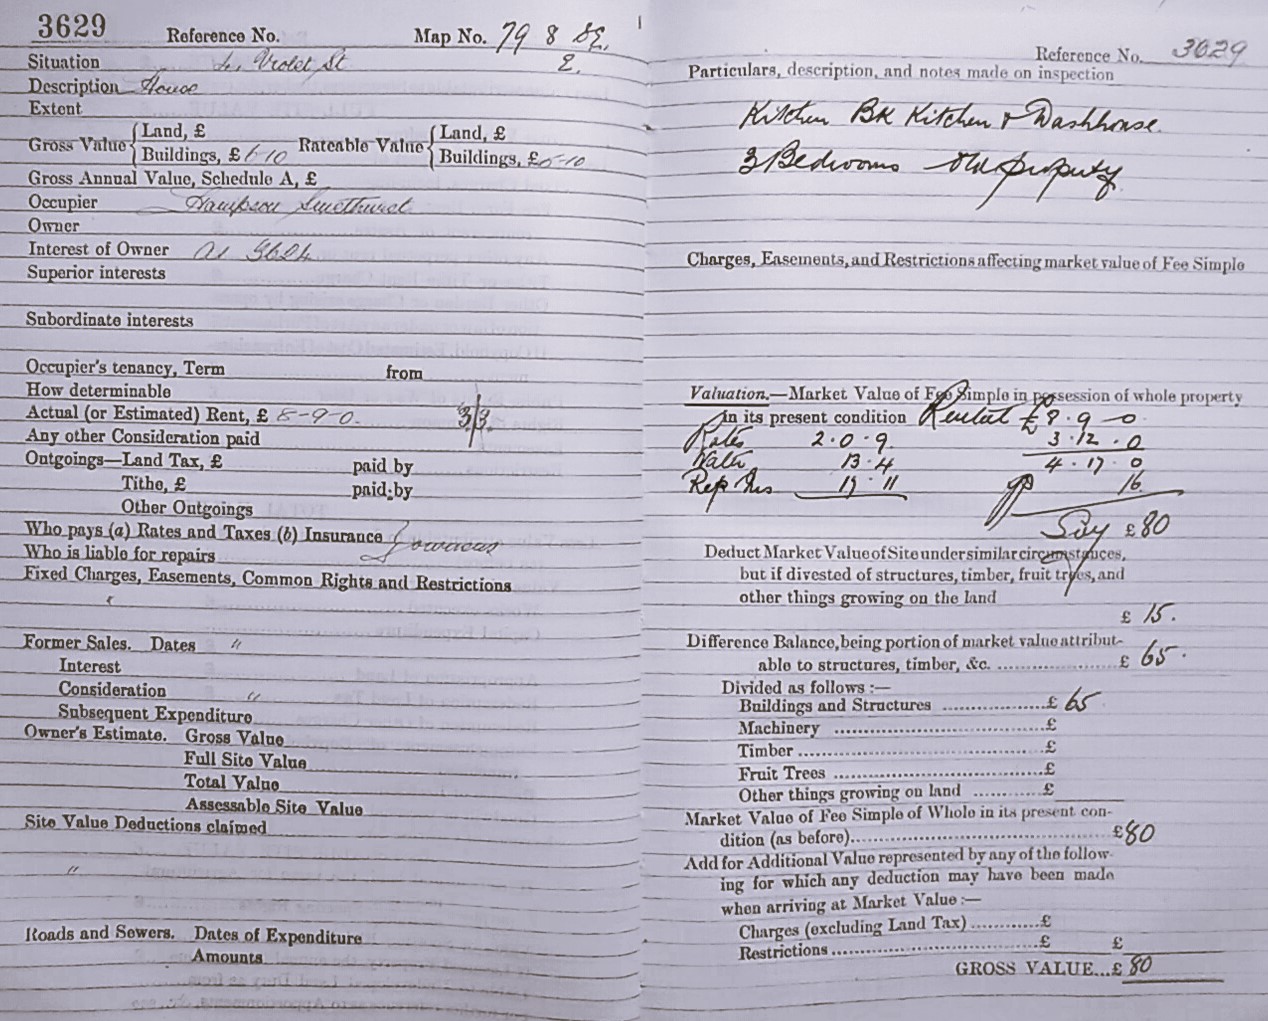 3629
Reference No.
Map No. 79 8 SE.
2.
Situation Violet St
Description House
Extent
Gross Value { Land, £
Buildings, £ 6-10
Rateable Value { Land, £
Buildings, £ 5-10
Gross Annual Value, Schedule A, £
Occupier Hampson Smethurst
Owner
Interest of Owner as
Superior interests
Subordinate interests
Occupier's tenancy, Term from
How determinable
Actual (or Estimated) Rent, £ 8-9-0. 3/3.
Any other Consideration paid
Outgoings—Land Tax, £ paid by
Tithe, £ paid by
Other Outgoings
Who pays (a) Rates and Taxes (b) Insurance
Who is liable for repairs
Fixed Charges, Easements, Common Rights and Restrictions
Former Sales. Dates "
Interest
Consideration "
Subsequent Expenditure
Owner's Estimate. Gross Value
Full Site Value
Total Value
Assessable Site Value
Site Value Deductions claimed
"
Roads and Sewers. Dates of Expenditure
Amounts
Reference No. 3629
Particulars, description, and notes made on inspection
Kitchen Bk Kitchen & Washhouse.
3 Bedrooms Old property
Charges, Easements, and Restrictions affecting market value of Fee Simple
Valuation.—Market Value of Fee Simple in possession of whole property
in its present condition Rental £8.9-0
Rates 2.0.9. 3.12.0
Water 13.4 4.17.0
Rep Ins 17.11 yp 16
Say £80
Deduct Market Value of Site under similar circumstances,
but if divested of structures, timber, fruit trees, and
other things growing on the land
£ 15.
Difference Balance, being portion of market value attribut-
able to structures, timber, &c. .................... £ 65.
Divided as follows:—
Buildings and Structures ....................£ 65
Machinery ....................£
Timber ....................£
Fruit Trees ....................£
Other things growing on land ............£
Market Value of Fee Simple of Whole in its present con-
dition (as before)....................£80
Add for Additional Value represented by any of the follow-
ing for which any deduction may have been made
when arriving at Market Value:—
Charges (excluding Land Tax) ............£
Restrictions ....................£ £
GROSS VALUE...£ 80